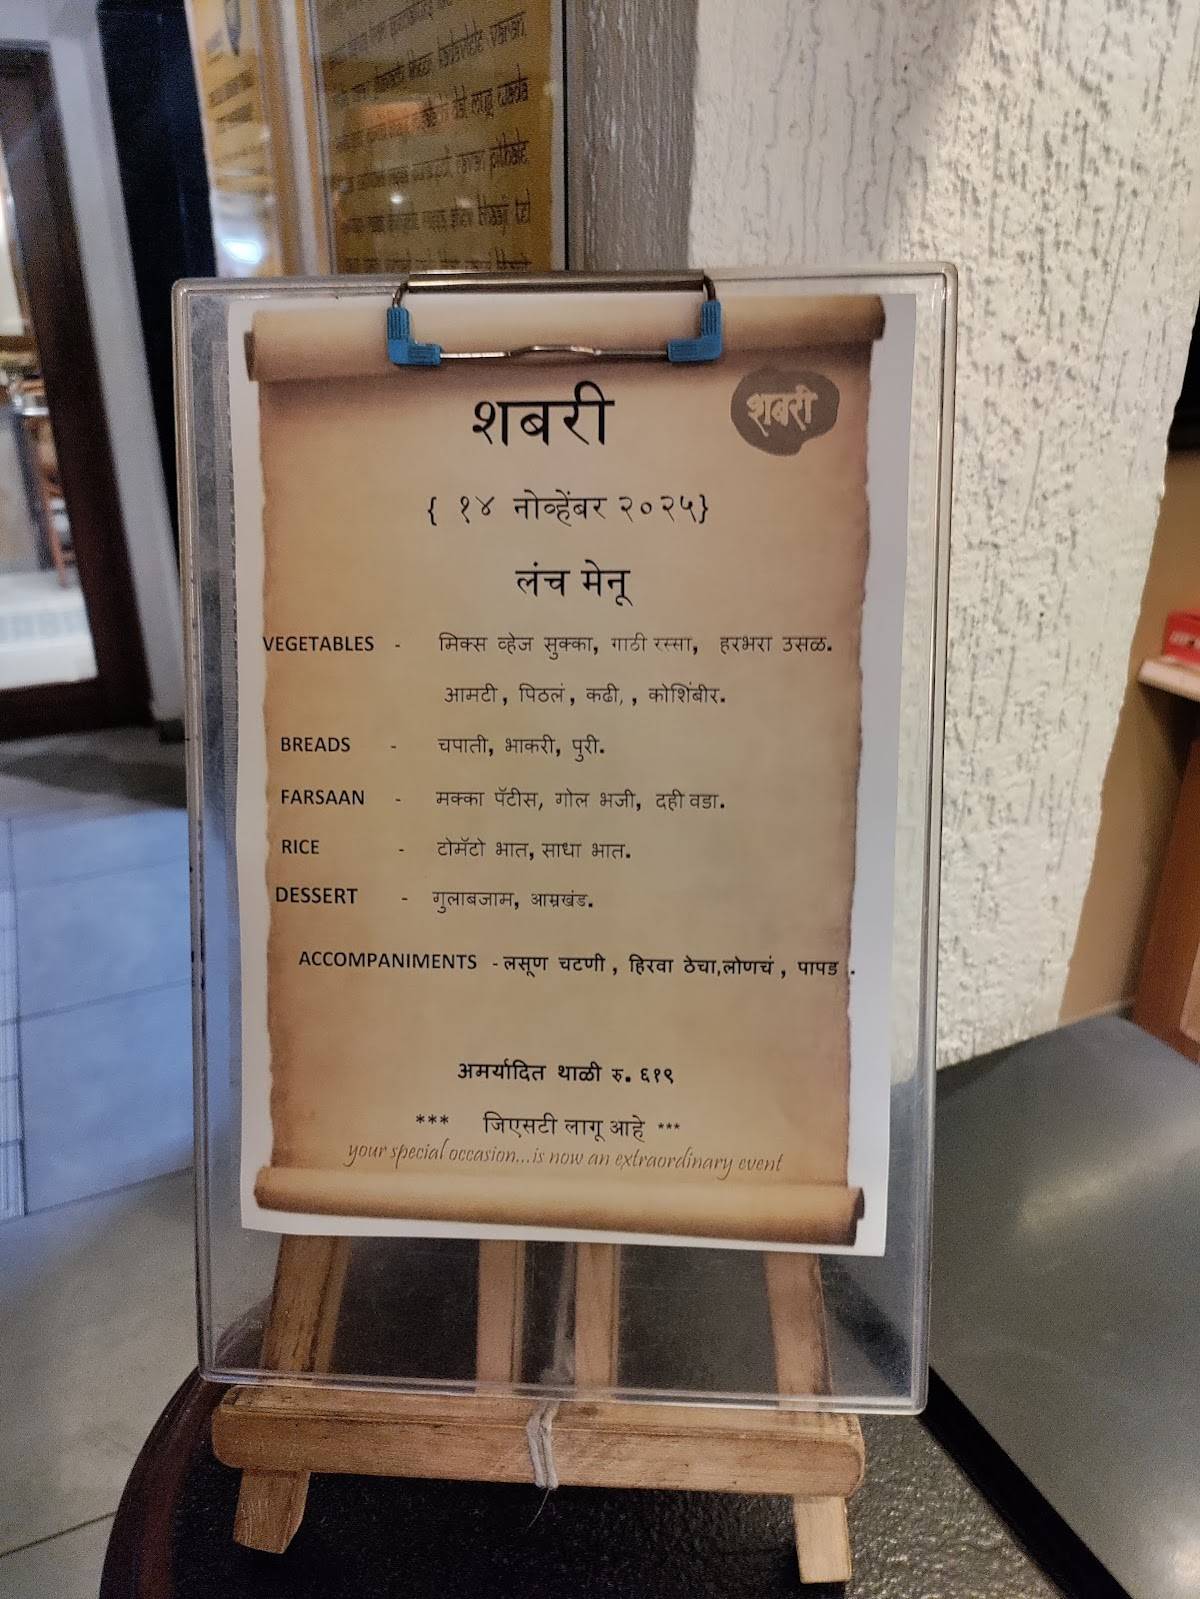 शबरी
शबरी
{ १४ नोव्हेंबर २०२५}
लंच मेनू
VEGETABLES - मिक्स व्हेज सुक्का, गाठी रस्सा, हरभरा उसळ.
आमटी , पिठलं , कढी, , कोशिंबीर.
BREADS - चपाती, भाकरी, पुरी.
FARSAAN - मक्का पॅटीस, गोल भजी, दही वडा.
RICE - टोमॅटो भात, साधा भात.
DESSERT - गुलाबजाम, आम्रखंड.
ACCOMPANIMENTS - लसूण चटणी , हिरवा ठेचा,लोणचं , पापड .
अमर्यादित थाळी रु. ६१९
*** जिएसटी लागू आहे ***
your special occasion...is now an extraordinary event